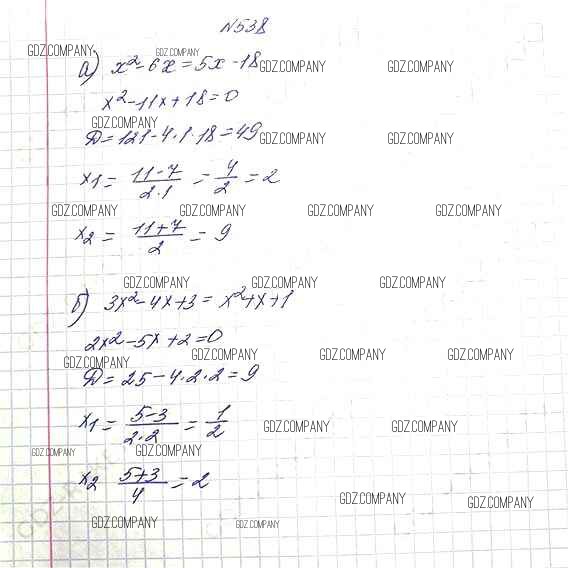 №538
GDZ.COMPANY GDZ.COMPANY
а) x²-6x=5x-18 GDZ.COMPANY GDZ.COMPANY
x²-11x+18=0
GDZ.COMPANY
Д=121-4·1·18=49 GDZ.COMPANY GDZ.COMPANY
x1= (11-7)/(2·1) = 4/2 = 2
GDZ.COMPANY GDZ.COMPANY GDZ.COMPANY GDZ.COMPANY
x2= (11+7)/2 = 9
GDZ.COMPANY GDZ.COMPANY GDZ.COMPANY
б) 3x²-4x+3=x²+x+1
2x²-5x+2=0
GDZ.COMPANY GDZ.COMPANY GDZ.COMPANY GDZ.COMPANY
Д=25-4·2·2=9
x1= (5-3)/(2·2) = 1/2 GDZ.COMPANY GDZ.COMPANY
GDZ.COMPANY GDZ.COMPANY
x2 (5+3)/4 = 2
GDZ.COMPANY GDZ.COMPANY
GDZ.COMPANY GDZ.COMPANY